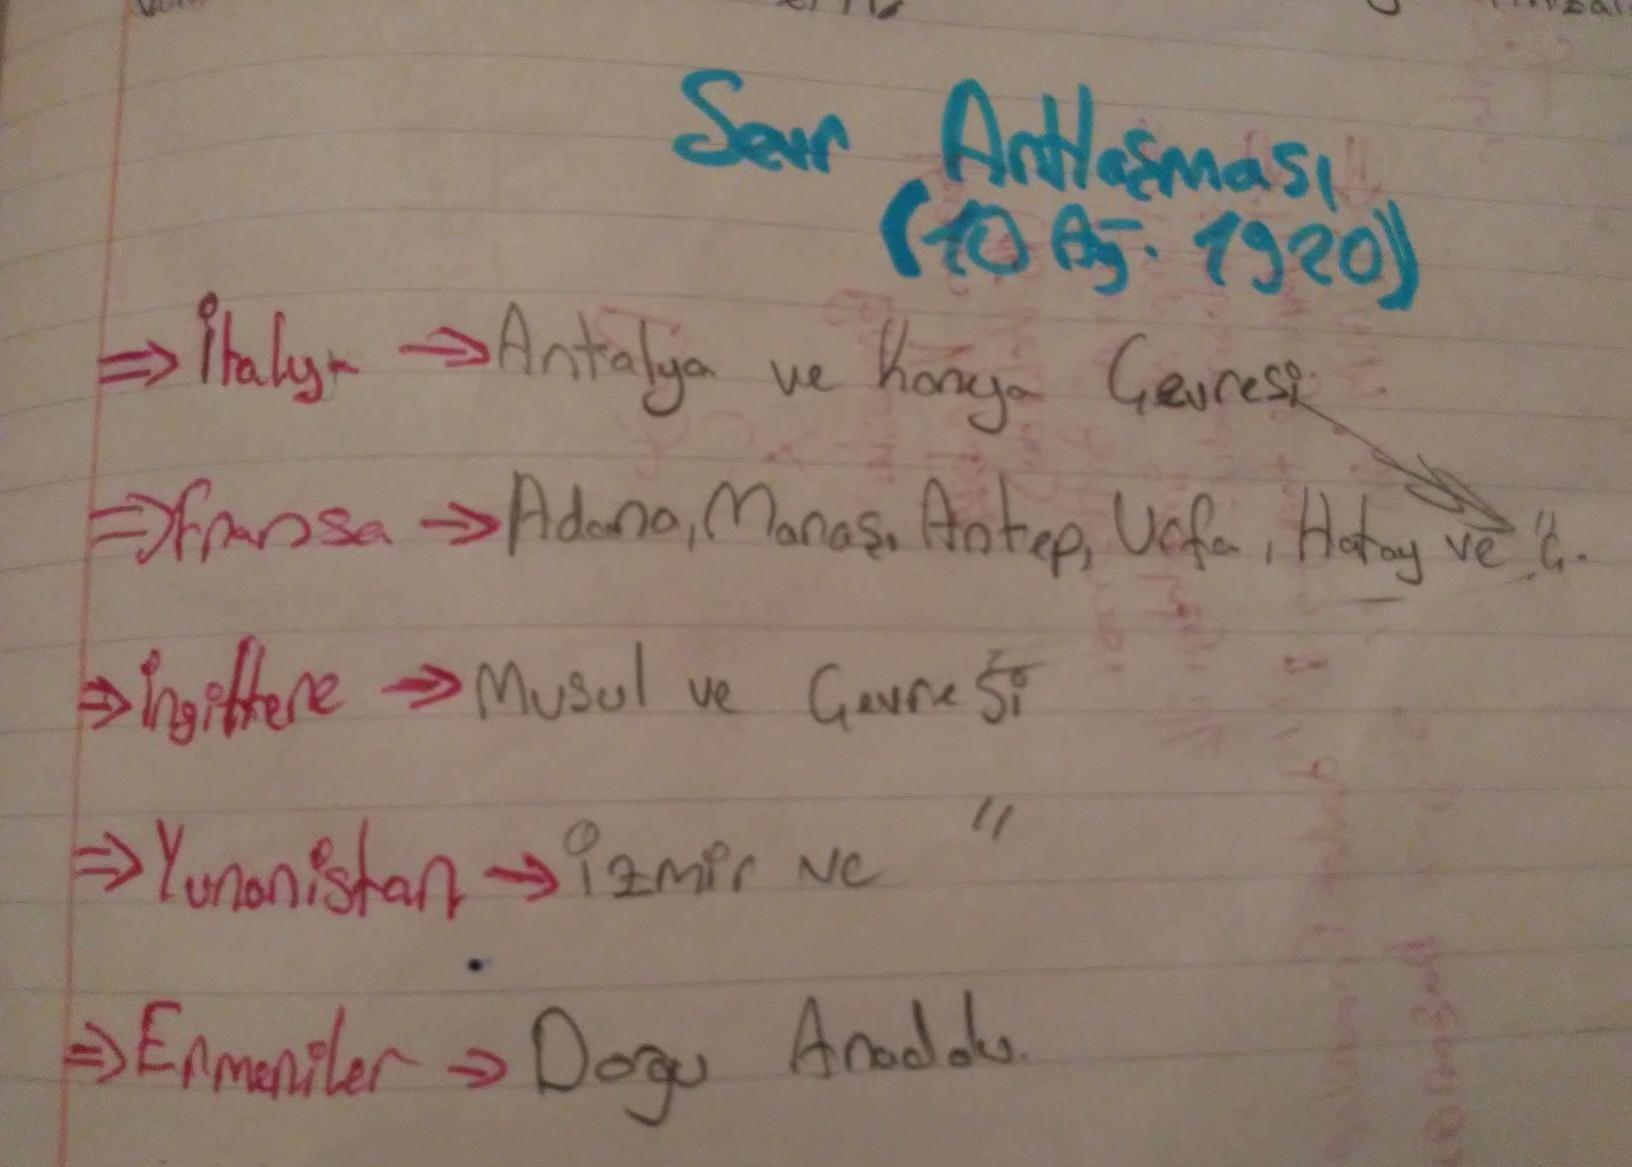 Sevr Antlaşması
(10 Ağ. 1920)
⇒ İtalya → Antalya ve Konya Çevresi
⇒ fransa → Adana, Maraş, Antep, Urfa, Hatay ve "Ç.
⇒ İngiltere → Musul ve Çevresi
⇒ Yunanistan → İzmir ve "
⇒ Ermeniler → Dogu Anadolu.